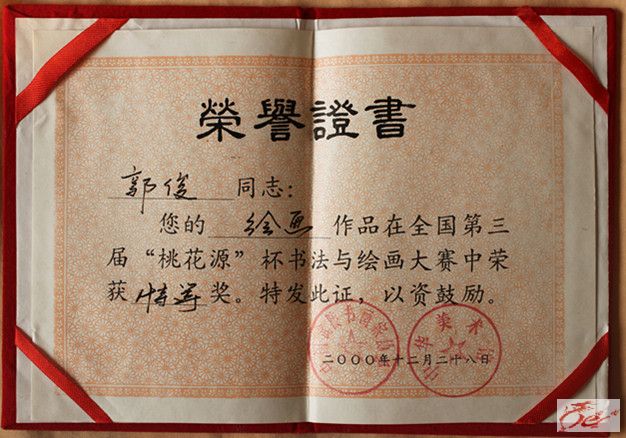 榮譽證書
郭俊 同志:
您的 绘画 作品在全国第三
届“桃花源”杯书法与绘画大赛中荣
获 特等 奖。特发此证，以资鼓励。
二000年十二月二十八日